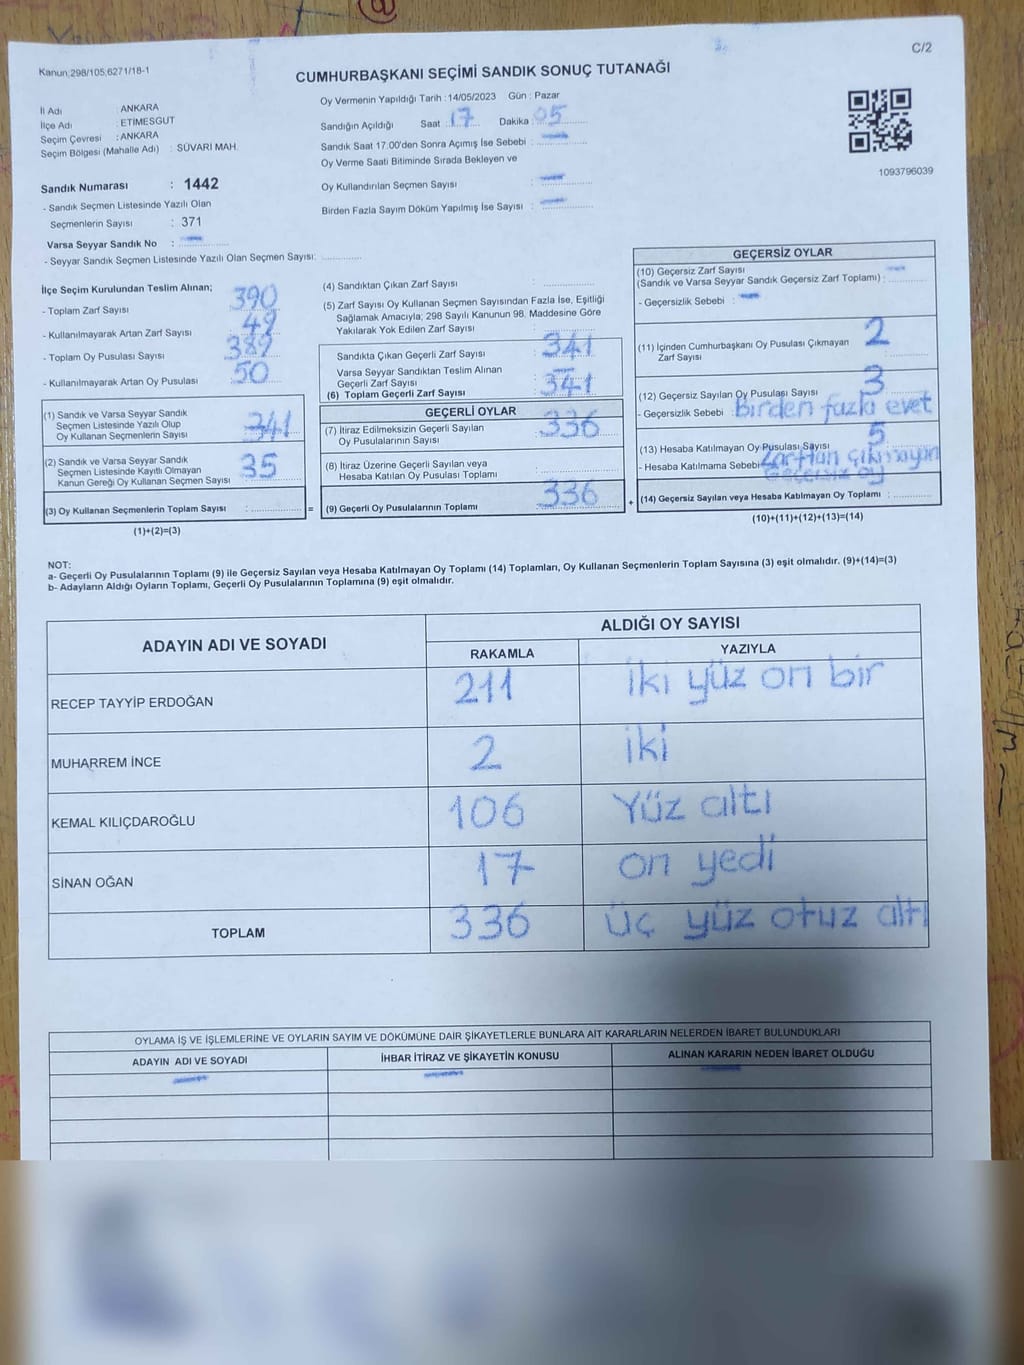 C/2
Kanun 298/105,6271/18-1
CUMHURBAŞKANI SEÇİMİ SANDIK SONUÇ TUTANAĞI
İl Adı : ANKARA
İlçe Adı : ETİMESGUT
Seçim Çevresi : ANKARA
Seçim Bölgesi (Mahalle Adı) : SÜVARİ MAH.
Sandık Numarası : 1442
- Sandık Seçmen Listesinde Yazılı Olan
Seçmenlerin Sayısı : 371
Varsa Seyyar Sandık No :
- Seyyar Sandık Seçmen Listesinde Yazılı Olan Seçmen Sayısı:
Oy Vermenin Yapıldığı Tarih : 14/05/2023 Gün : Pazar
Sandığın Açıldığı Saat : 17 Dakika : 05
Sandık Saat 17.00'den Sonra Açımış İse Sebebi :
Oy Verme Saati Bitiminde Sırada Bekleyen ve
Oy Kullandırılan Seçmen Sayısı :
Birden Fazla Sayım Döküm Yapılmış İse Sayısı :
1093796039
İlçe Seçim Kurulundan Teslim Alınan;
- Toplam Zarf Sayısı : 390
- Kullanılmayarak Artan Zarf Sayısı : 49
- Toplam Oy Pusulası Sayısı : 389
- Kullanılmayarak Artan Oy Pusulası : 50
(1) Sandık ve Varsa Seyyar Sandık
Seçmen Listesinde Yazılı Olup
Oy Kullanan Seçmenlerin Sayısı : 341
(2) Sandık ve Varsa Seyyar Sandık
Seçmen Listesinde Kayıtlı Olmayan
Kanun Gereği Oy Kullanan Seçmen Sayısı : 35
(3) Oy Kullanan Seçmenlerin Toplam Sayısı : =
(1)+(2)=(3)
(4) Sandıktan Çıkan Zarf Sayısı :
(5) Zarf Sayısı Oy Kullanan Seçmen Sayısından Fazla İse, Eşitliği
Sağlamak Amacıyla; 298 Sayılı Kanunun 98. Maddesine Göre
Yakılarak Yok Edilen Zarf Sayısı :
Sandıkta Çıkan Geçerli Zarf Sayısı : 341
Varsa Seyyar Sandıktan Teslim Alınan
Geçerli Zarf Sayısı :
(6) Toplam Geçerli Zarf Sayısı : 341
GEÇERLİ OYLAR
(7) İtiraz Edilmeksizin Geçerli Sayılan
Oy Pusulalarının Sayısı : 336
(8) İtiraz Üzerine Geçerli Sayılan veya
Hesaba Katılan Oy Pusulası Toplamı :
(9) Geçerli Oy Pusulalarının Toplamı : 336 +
GEÇERSİZ OYLAR
(10) Geçersiz Zarf Sayısı
(Sandık ve Varsa Seyyar Sandık Geçersiz Zarf Toplamı) :
- Geçersizlik Sebebi :
(11) İçinden Cumhurbaşkanı Oy Pusulası Çıkmayan
Zarf Sayısı : 2
(12) Geçersiz Sayılan Oy Pusulası Sayısı : 3
- Geçersizlik Sebebi : Birden fazla evet
(13) Hesaba Katılmayan Oy Pusulası Sayısı : 5
- Hesaba Katılmama Sebebi : Zarftan çıkmayan
Geçersiz oy
(14) Geçersiz Sayılan veya Hesaba Katılmayan Oy Toplamı :
(10)+(11)+(12)+(13)=(14)
NOT:
a- Geçerli Oy Pusulalarının Toplamı (9) ile Geçersiz Sayılan veya Hesaba Katılmayan Oy Toplamı (14) Toplamları, Oy Kullanan Seçmenlerin Toplam Sayısına (3) eşit olmalıdır. (9)+(14)=(3)
b- Adayların Aldığı Oyların Toplamı, Geçerli Oy Pusulalarının Toplamına (9) eşit olmalıdır.
ADAYIN ADI VE SOYADI ALDIĞI OY SAYISI
RAKAMLA YAZIYLA
RECEP TAYYİP ERDOĞAN 211 iki yüz on bir
MUHARREM İNCE 2 iki
KEMAL KILIÇDAROĞLU 106 Yüz altı
SİNAN OĞAN 17 on yedi
TOPLAM 336 üç yüz otuz altı
OYLAMA İŞ VE İŞLEMLERİNE VE OYLARIN SAYIM VE DÖKÜMÜNE DAİR ŞİKAYETLERLE BUNLARA AİT KARARLARIN NELERDEN İBARET BULUNDUKLARI
ADAYIN ADI VE SOYADI İHBAR İTİRAZ VE ŞİKAYETİN KONUSU ALINAN KARARIN NEDEN İBARET OLDUĞU